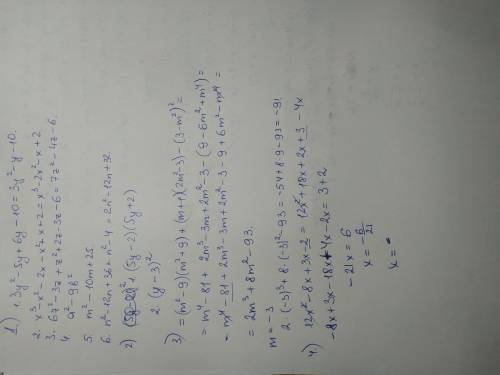 1) 1. 3y² - 5y + 6y - 10 = 3y² - y - 10.
2. x³ - x² - 2x - x² - x + 2 = x³ - 2x² - x + 2
3. 6z² - 3z + z² + 2z - 3z - 6 = 7z² - 4z - 6.
4. a² - 9b²
5. m² - 10m + 25
6. n² - 12n + 36 + n² - 4 = 2n² - 12n + 32.
2) + (5y - 2)(5y + 2)
2. (y - 3)²
3) = (m² - 9)(m² + 9) + (m + 1)(2m² - 3) - (3 - m²)² =
= m⁴ - 81 + 2m³ - 3m + 2m² - 3 - (9 - 6m² + m⁴) =
= m⁴ - 81 + 2m³ - 3m + 2m² - 3 - 9 + 6m² - m⁴ =
= 2m³ + 8m² - 93.
m = -3
2 · (-3)³ + 8 · (-3)² - 93 = -54 + 8 · 9 - 93 = -91.
4) 12x² - 8x + 3x - 2 = 12x² + 18x + 2x + 3 - 4x
-8x + 3x - 18x + 4x - 2x = 3 + 2
-21x = 6
x = -6/21
x =